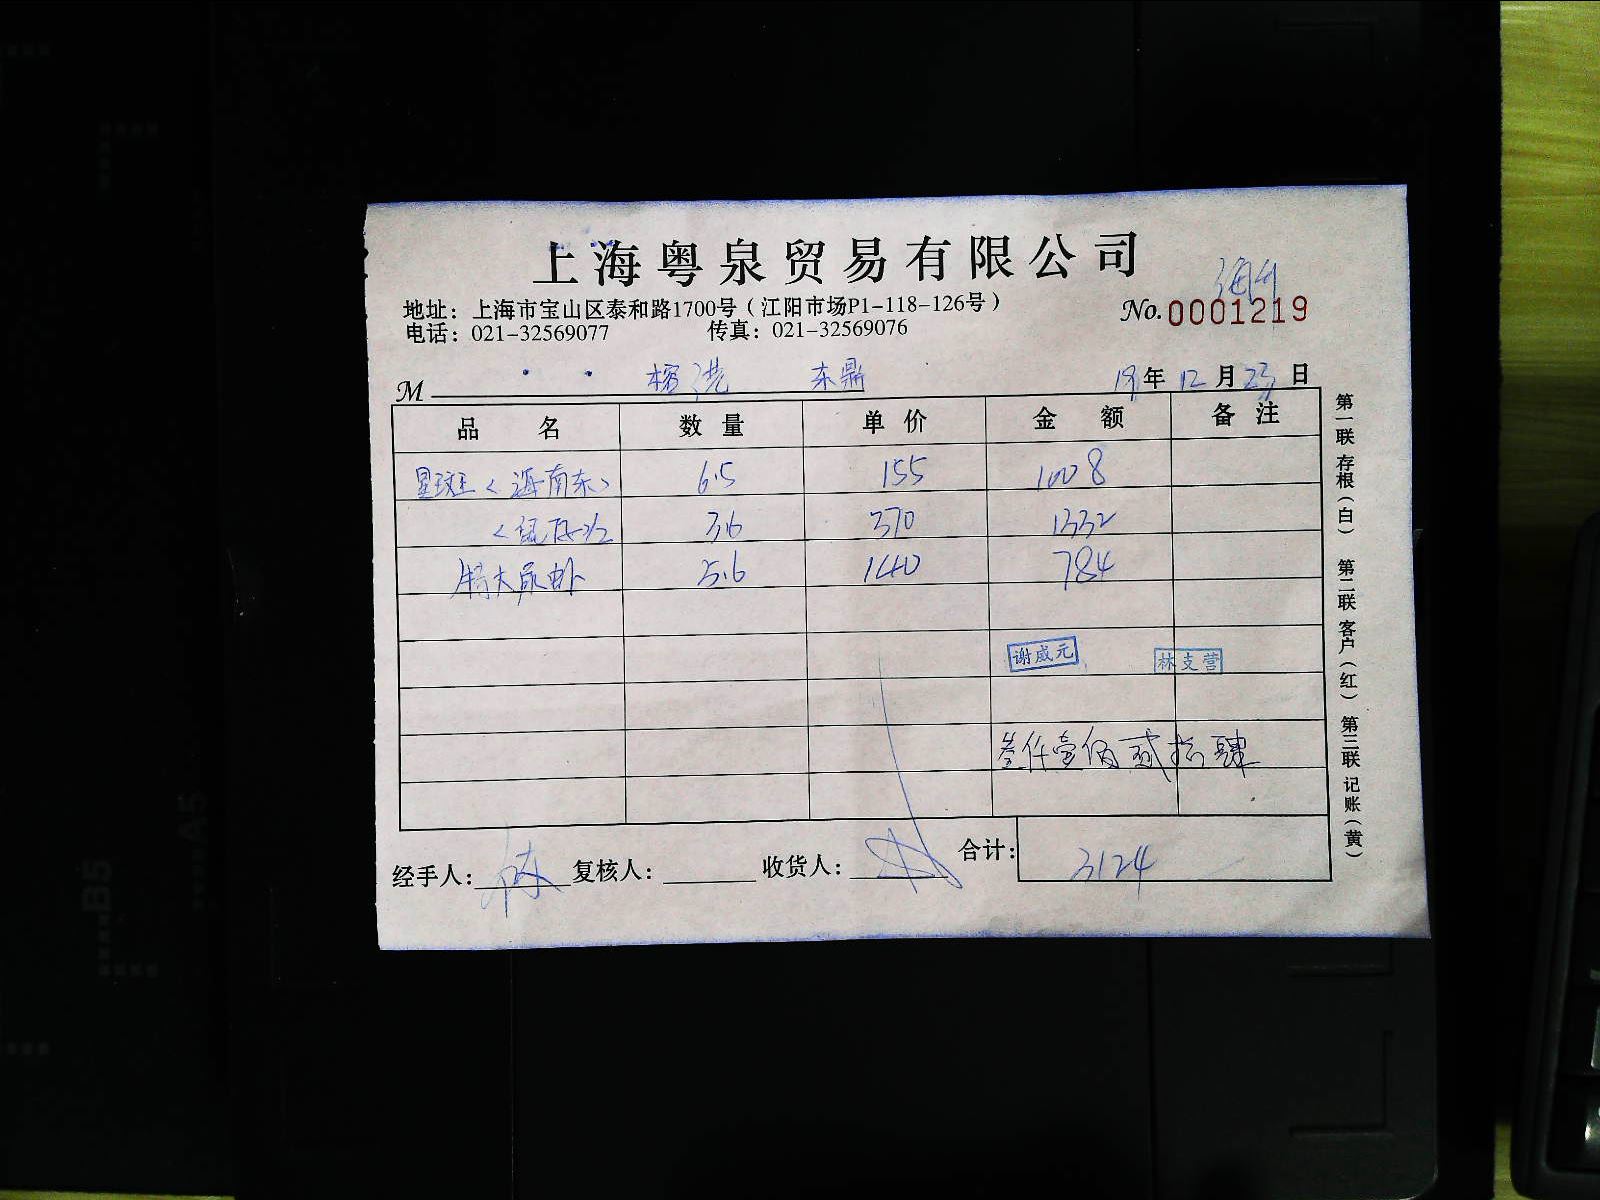 上海粤泉贸易有限公司
地址：上海市宝山区泰和路1700号（江阳市场P1-118-126号）
电话：021-32569077 传真：021-32569076
No. 0001219
M 东鼎 19年12月23日
品名 数量 单价 金额 备注
星斑<海南东> 6.5 155 1008
3.6 370 1332
特大尿虾 5.6 140 784
谢威元 林支营
叁仟壹佰贰拾肆
经手人： 复核人： 收货人： 合计： 3124
第一联存根（白） 第二联客户（红） 第三联记账（黄）
B5
A5